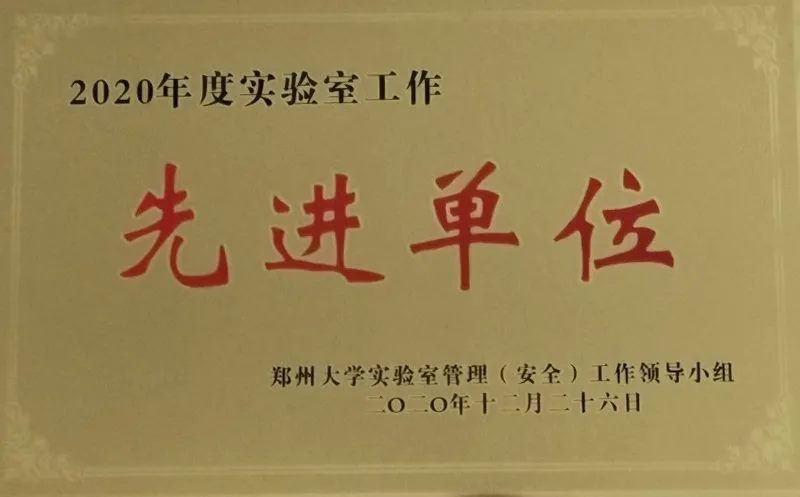 2020年度实验室工作
先进单位
郑州大学实验室管理（安全）工作领导小组
二〇二〇年十二月二十六日